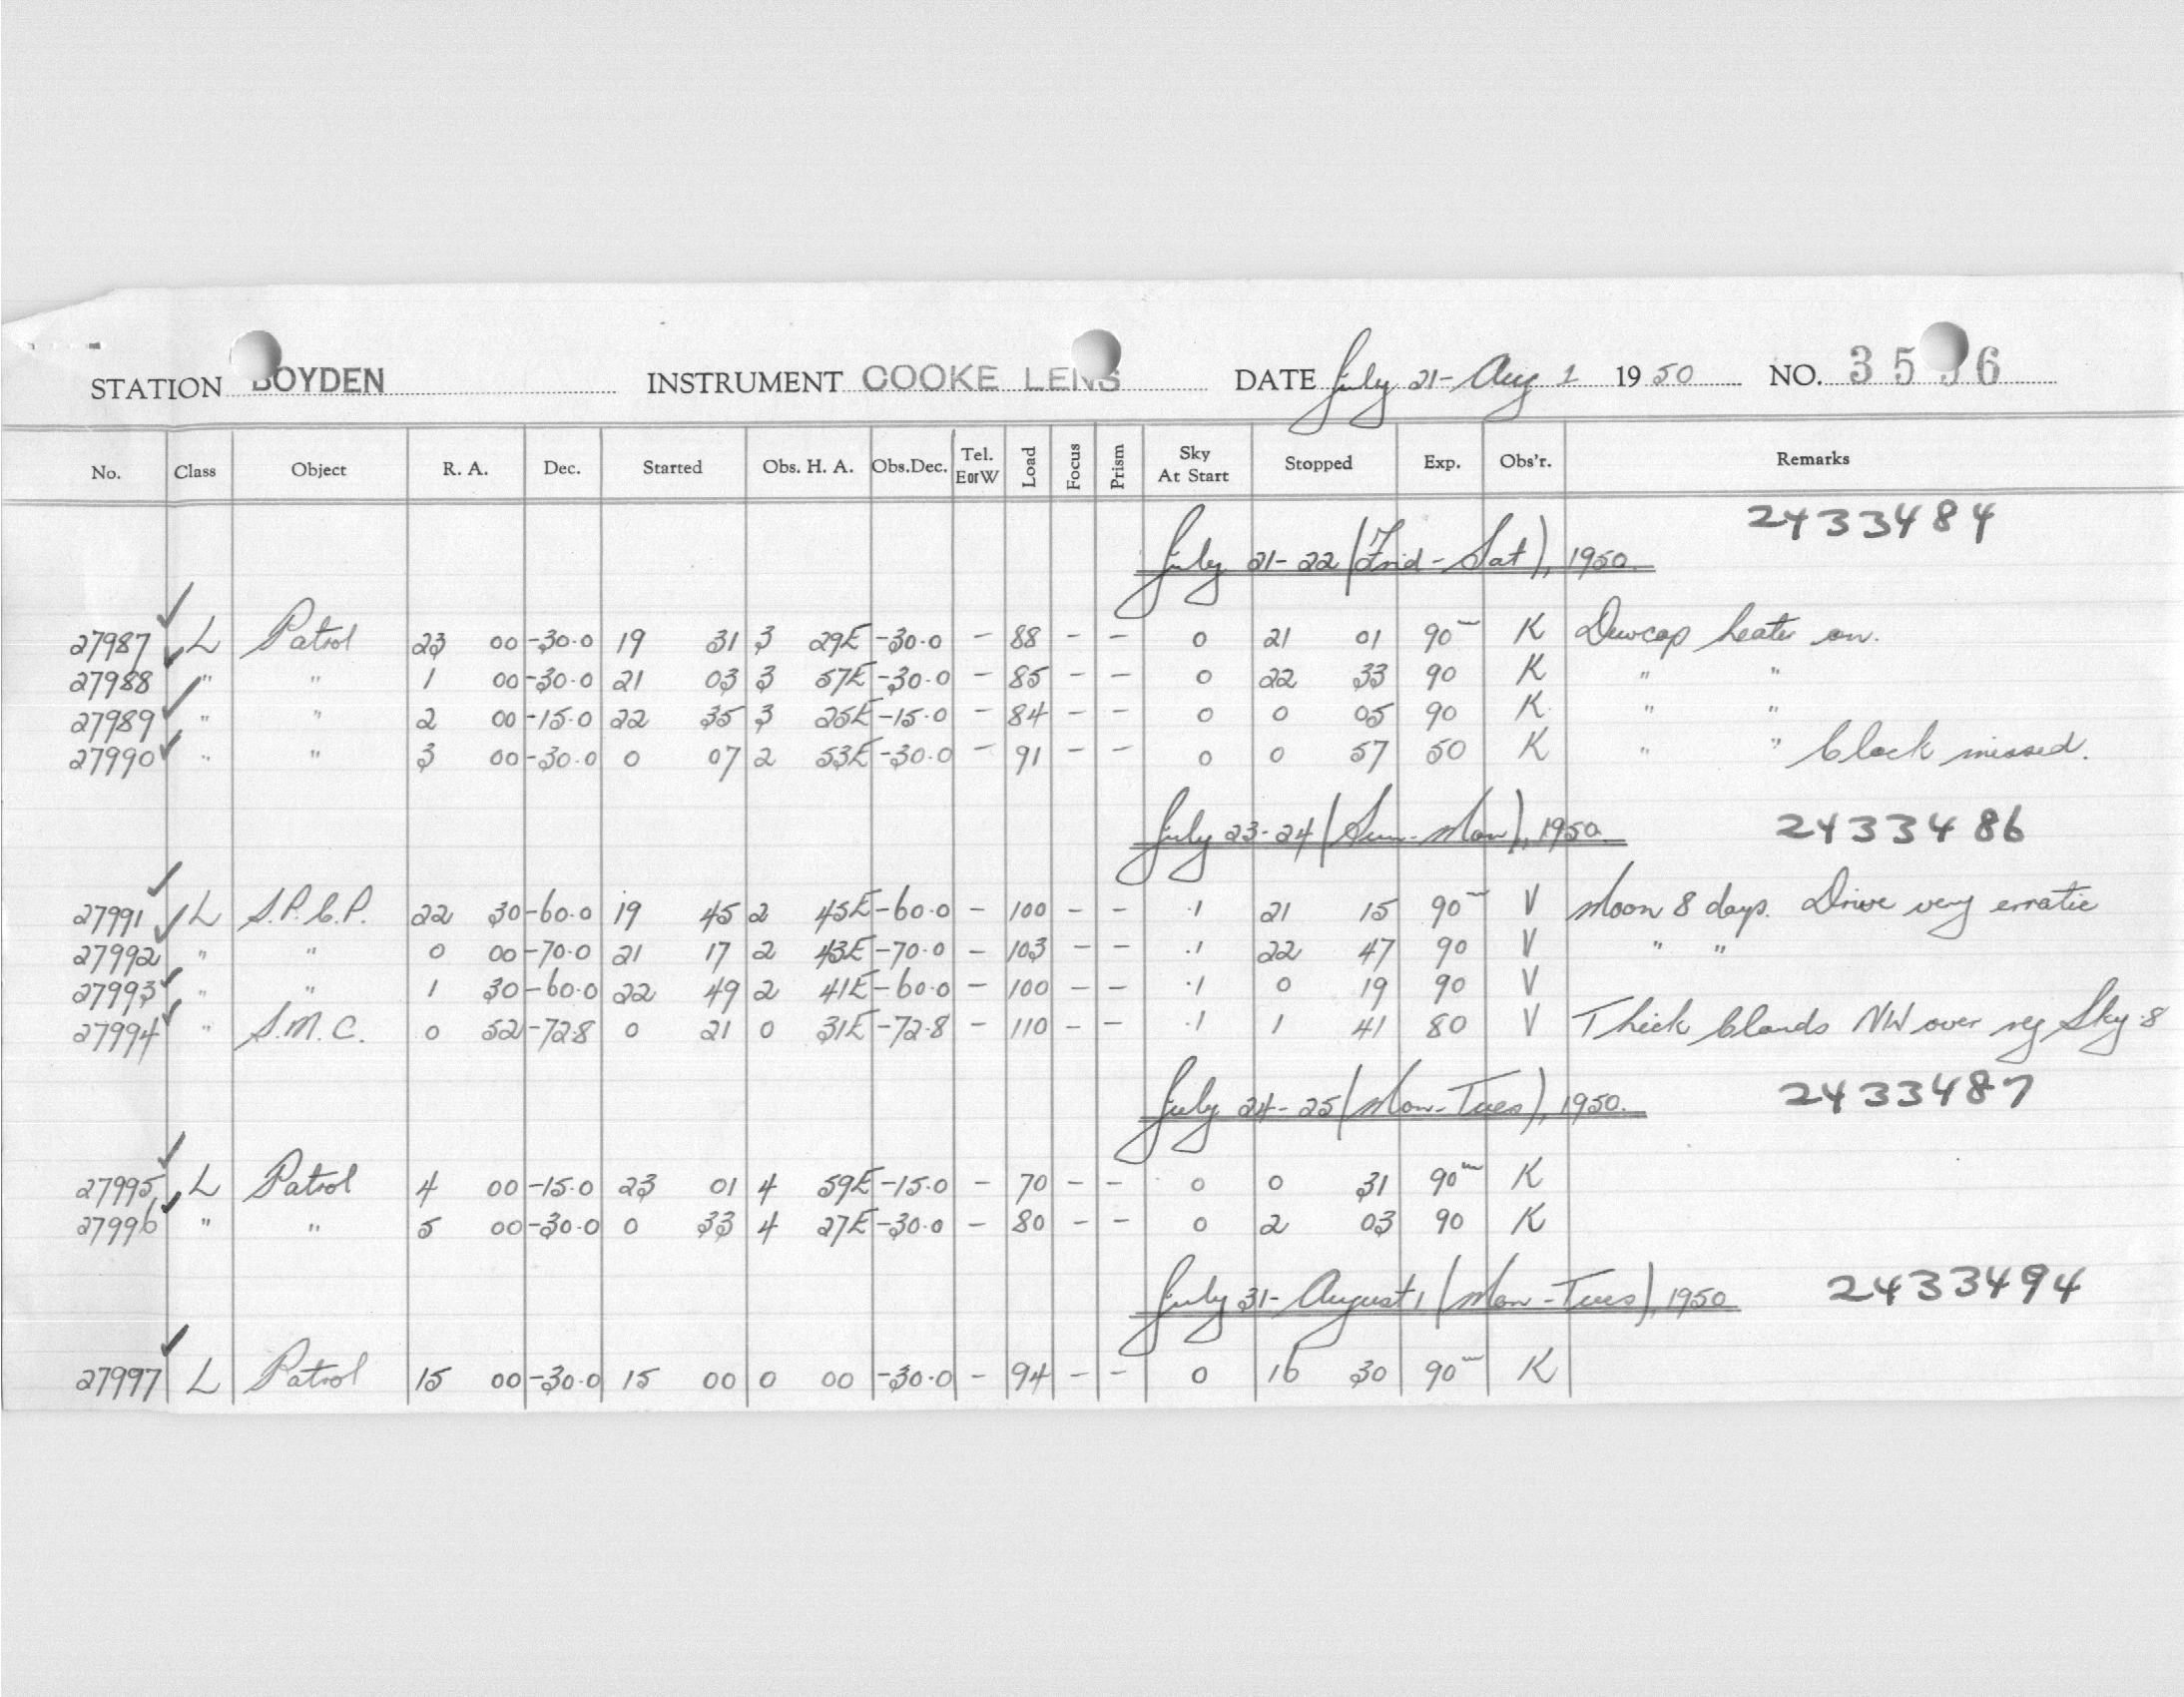 STATION BOYDEN INSTRUMENT COOKE LENS DATE July 21-Aug 1 1950 NO. 35 6
No. Class Object R. A. Dec. Started Obs. H. A. Obs.Dec. Tel. EorW Load Focus Prism Sky At Start Stopped Exp. Obs'r. Remarks
2433484
July 21-22 (Frid-Sat), 1950.
27987 L Patrol 23 00 -30.0 19 31 3 29E -30.0 - 88 - - 0 21 01 90m K Dewcap heater on.
27988 " " 1 00 -30.0 21 03 3 57E -30.0 - 85 - - 0 22 33 90 K " "
27989 " " 2 00 -15.0 22 35 3 25E -15.0 - 84 - - 0 0 05 90 K " "
27990 " " 3 00 -30.0 0 07 2 53E -30.0 - 91 - - 0 0 57 50 K " " Clock missed.
July 23-24 (Sun-Mon), 1950. 2433486
27991 L S.P.C.P. 22 30 -60.0 19 45 2 45E -60.0 - 100 - - .1 21 15 90m V Moon 8 days. Drive very erratic
27992 " " 0 00 -70.0 21 17 2 43E -70.0 - 103 - - .1 22 47 90 V " "
27993 " " 1 30 -60.0 22 49 2 41E -60.0 - 100 - - .1 0 19 90 V
27994 " S.M.C. 0 52 -72.8 0 21 0 31E -72.8 - 110 - - .1 1 41 80 V Thick Clouds NW over reg Sky .8
July 24-25 (Mon-Tues), 1950. 2433487
27995 L Patrol 4 00 -15.0 23 01 4 59E -15.0 - 70 - - 0 0 31 90m K
27996 " " 5 00 -30.0 0 33 4 27E -30.0 - 80 - - 0 2 03 90 K
July 31-August 1 (Mon-Tues), 1950 2433494
27997 L Patrol 15 00 -30.0 15 00 0 00 -30.0 - 94 - - 0 16 30 90m K